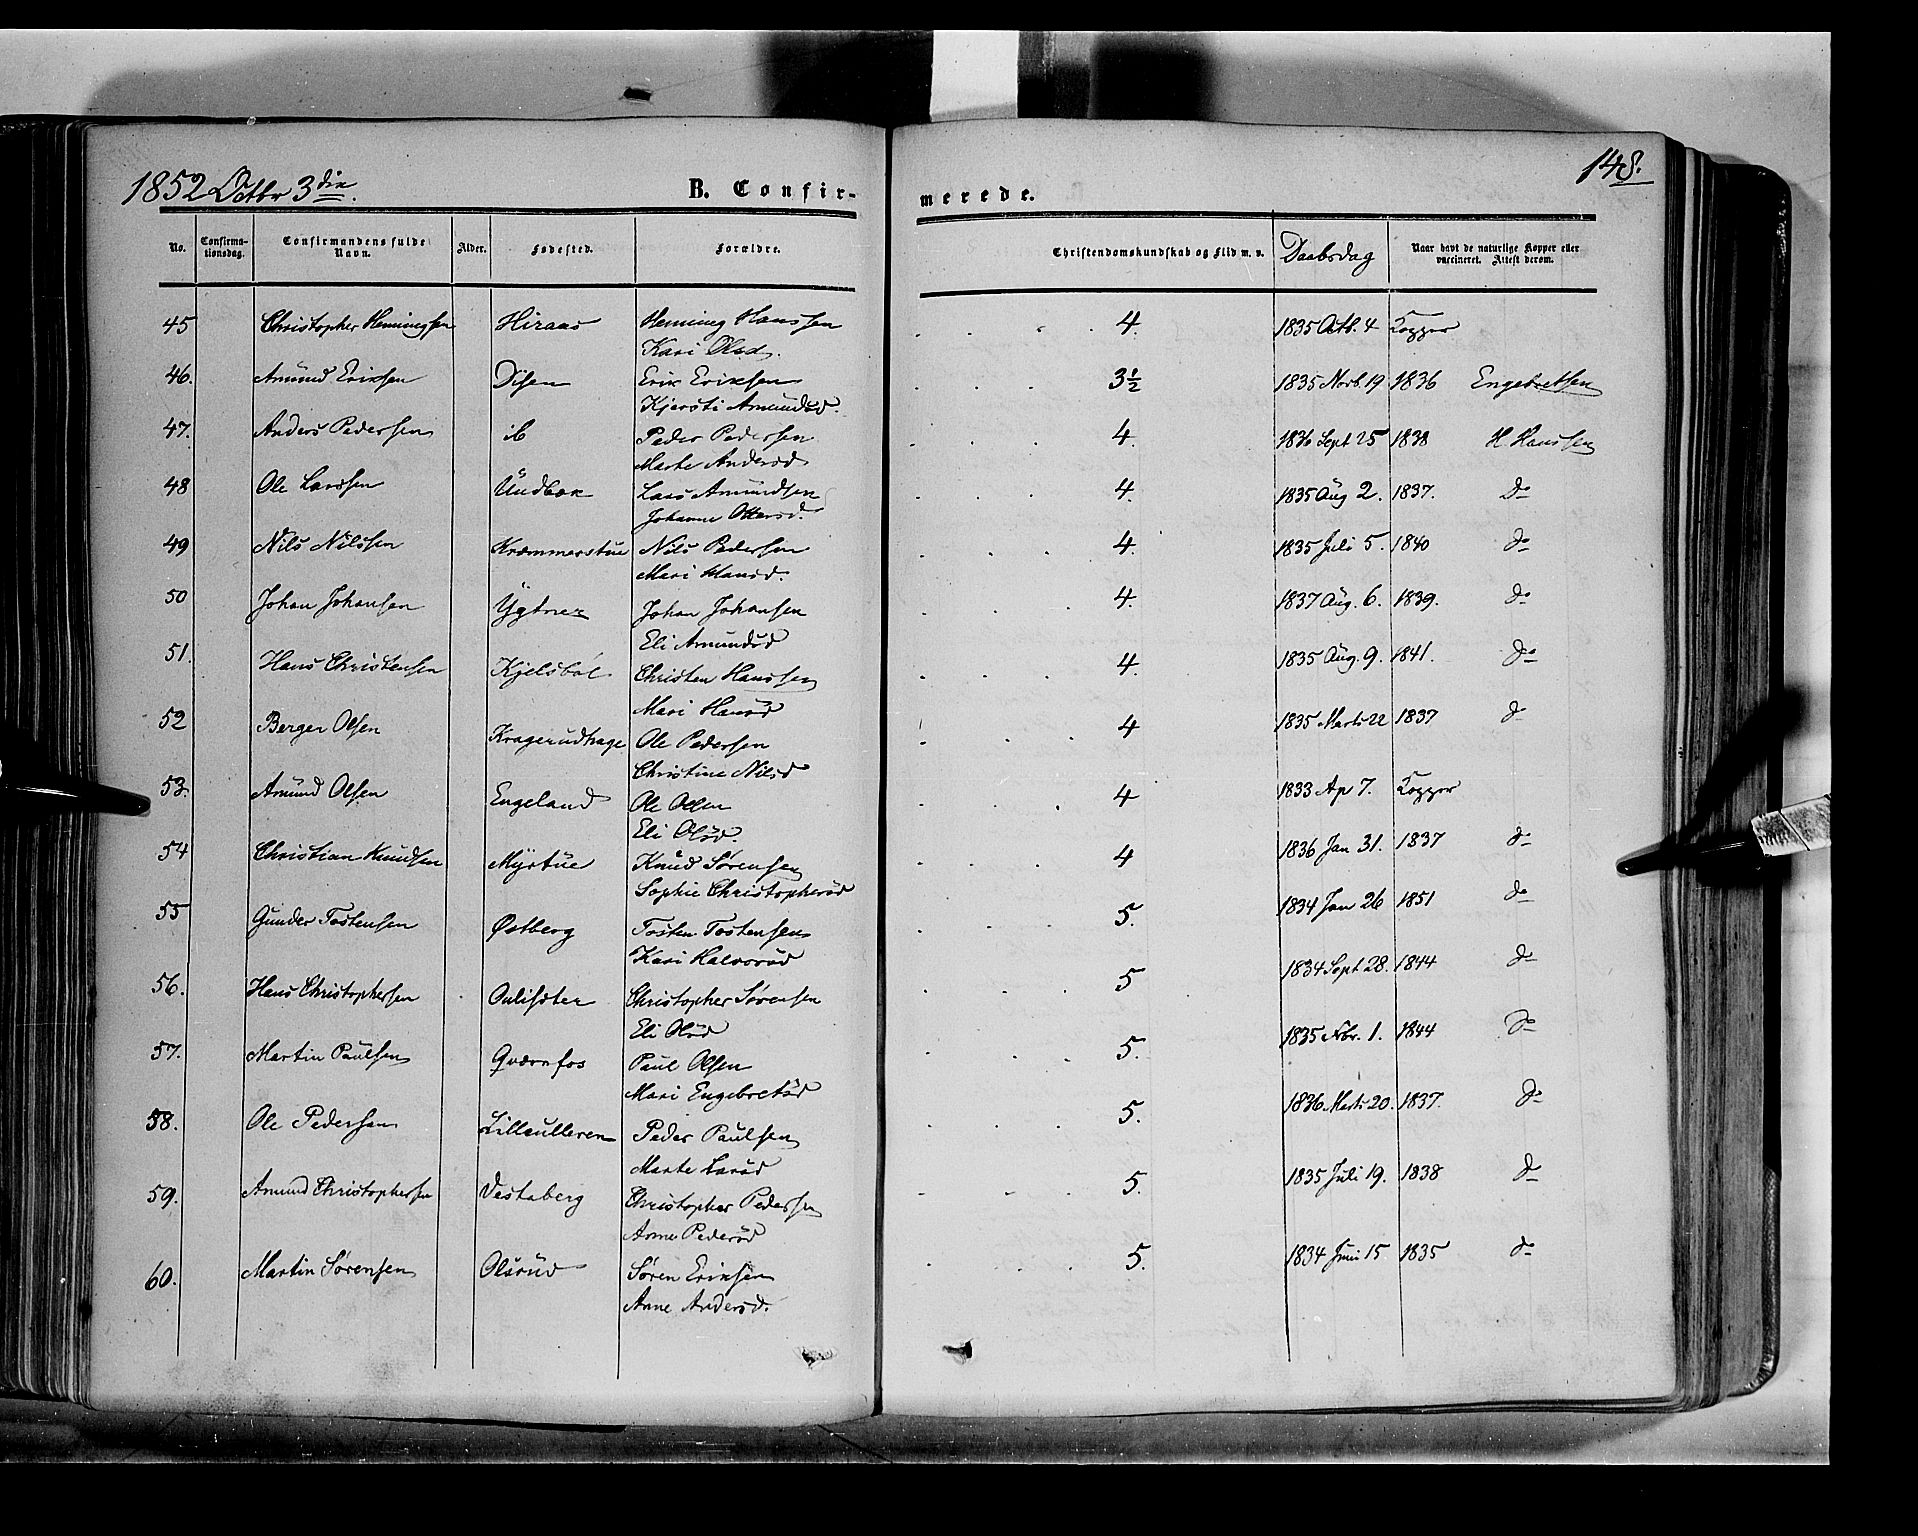 1852 Octbr 3die. B. Confirmerede. 148.
No. Confirmationsdag. Confirmandens fulde Navn. Alder. Fødested. Forældre. Christendomskundskab og Flid m. v. Daabsdag Naar havt de naturlige Kopper eller vaccineret. Attest derom.
45 Christopher Henningsen Hiraas Henning Hanssen 4. 1835 Octb. 4 Kopper
Kari Olsd.
46. Amund Eriksen Disen Erik Eriksen 3½ 1835 Novb. 19 1836 Engebretsen
Kjersti Amundsd.
47. Anders Pedersen ib Peder Pedersen 4. 1836 Sept 25 1838 H. Hanssen
Marte Andersd
48 Ole Larssen Undbæk Lars Amundsen 4. 1835 Aug 2. 1837. Do
Johanne Ottersd.
49 Nils Nilssen Kræmmerstue Nils Pedersen 4. 1835 Juli 5. 1840 do
Mari Hansd.
50 Johan Johansen Ygtner Johan Johansen 4. 1837 Aug. 6. 1839. do
Eli Amundsd
51. Hans Christensen Kjelsbøl Christen Hanssen 4. 1835 Aug. 9. 1841. do
Mari Hansd
52 Berger Olsen Kragerudhage Ole Pedersen 4 1835 Marts 22 1837 do
Christine Nilsd
53. Amund Olsen Engeland Ole Olsen 4 1833 Ap 7. Kopper
Eli Olsd.
54 Christian Knudsen Myrtue Knud Sørensen 4 1836 Jan 31. 1837 do
Sophie Christophersd
55 Gunder Tostensen Østberg Tosten Tostensen 5. 1834 Jan 26 1851 do
Kari Halvorsd
56. Hans Christophersen Oulisæter Christopher Sørensen 5 1834 Sept 28. 1844 do
Eli Olsd
57. Martin Paulsen Qværnfos Paul Olsen 5. 1835 Nbr. 1. 1844 Do
Mari Engebretsd
58. Ole Pedersen Lilleulleren Peder Paulsen 5. 1836 Marts 20. 1837. do
Marte Larsd
59. Amund Christophersen Vestaberg Christopher Pedersen 5. 1835 Juli 19. 1838 do
Anne Pedersd
60. Martin Sørensen Olsrud Søren Eriksen 5. 1834 Juni 15 1835 do
Anne Andersd.